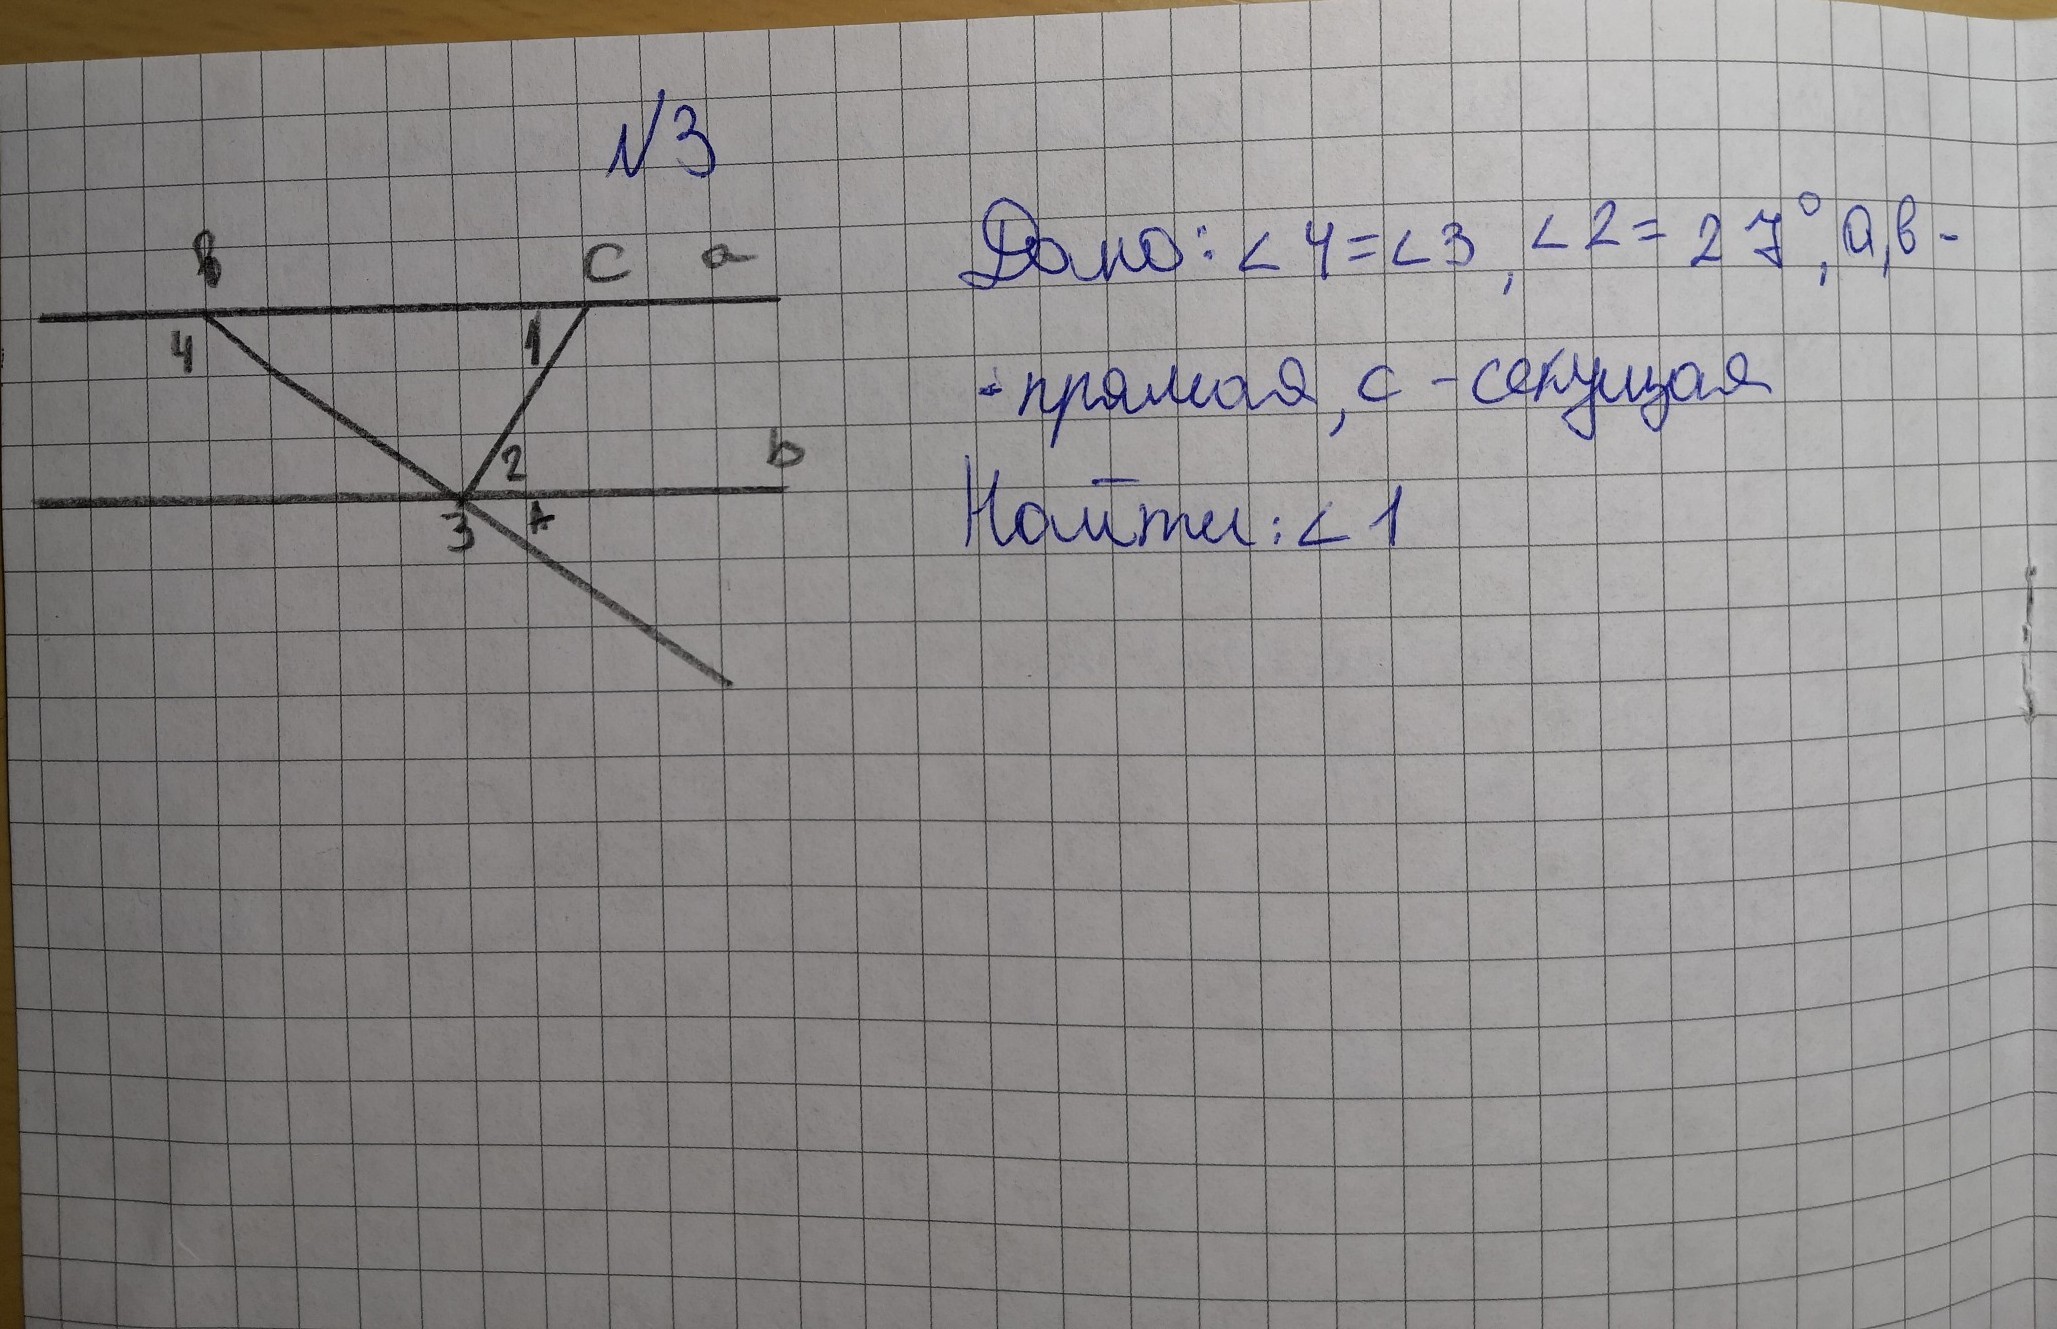 N3
B C a
4 1
2 b
3 A
Дано: ∠4=∠3, ∠2=27°, a,в-
-прямая, с-секущая
Найти: ∠1